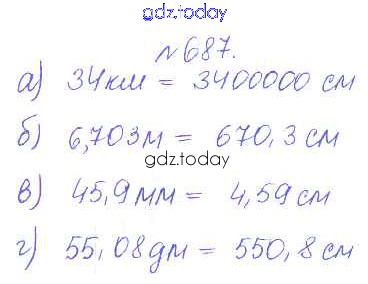 gdz.today
№687.
а) 34км = 3400000 см
б) 6,703м = 670,3 см
gdz.today
в) 45,9 мм = 4,59 см
г) 55,08 дм = 550,8 см